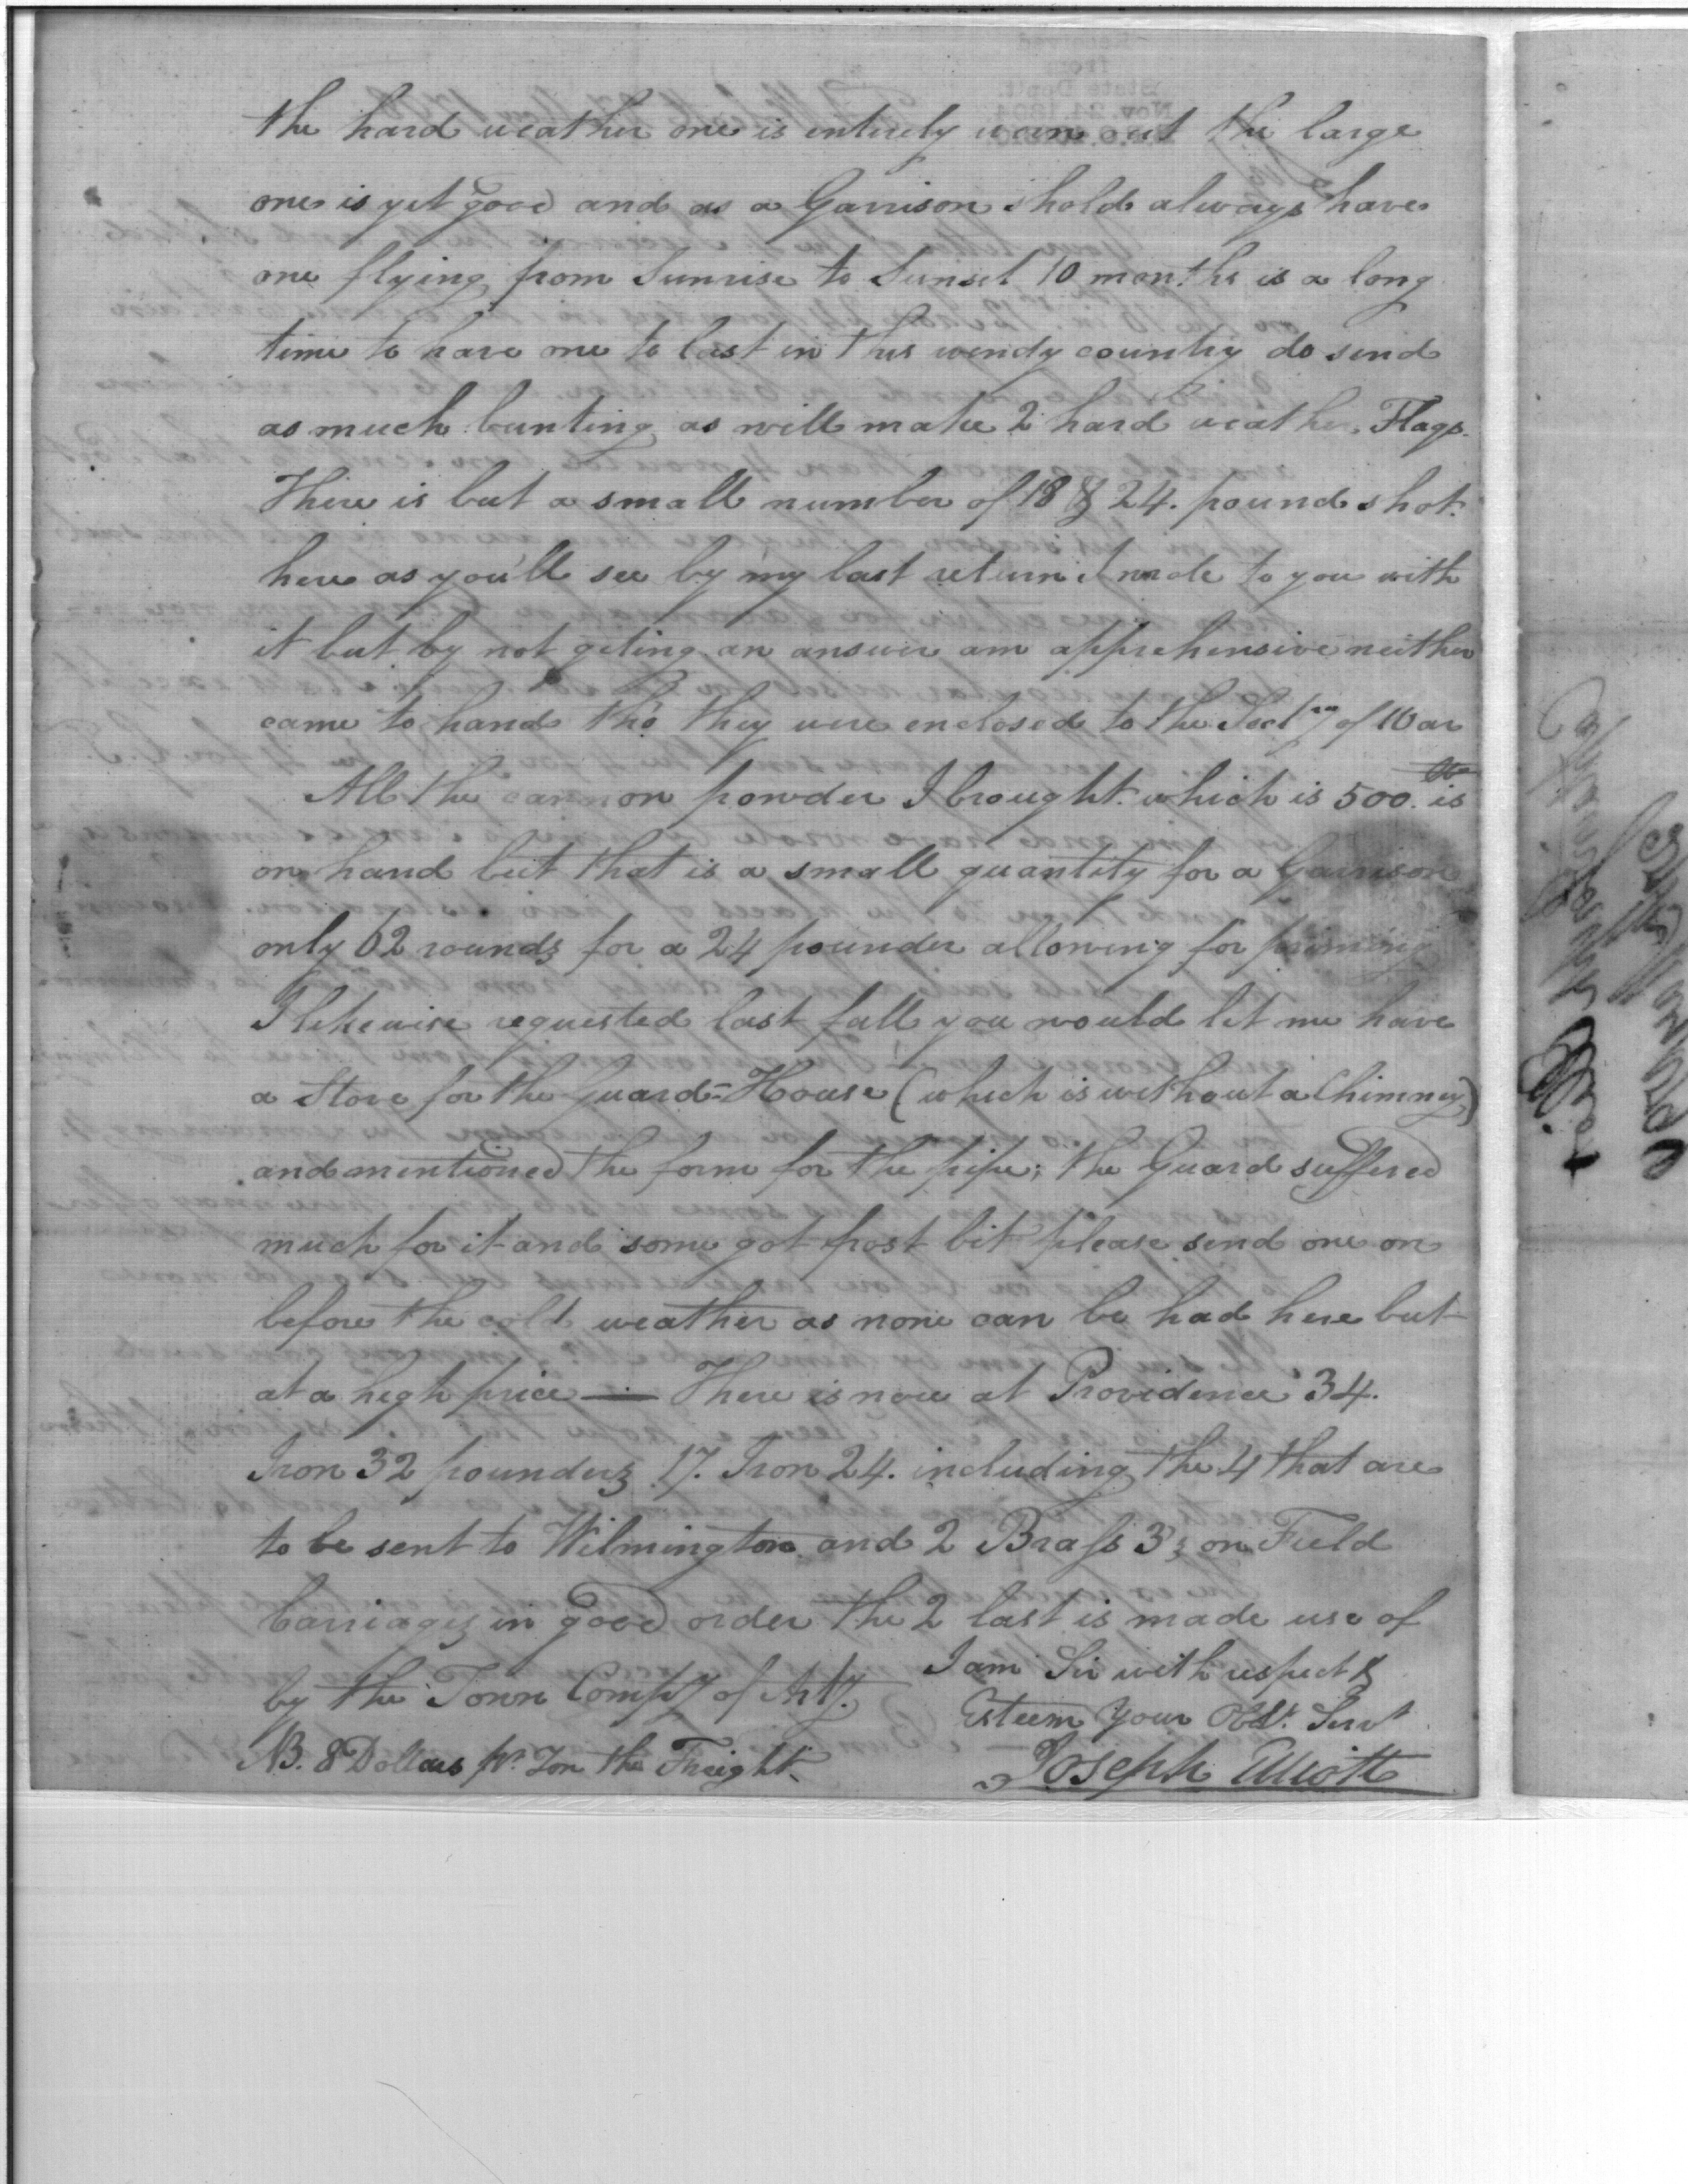 the hard weather one is entirely worn out the large
one is yet good and as a Garrison shold always have
one flying from Sunrise to Sunset 10 months is a long
time to have one to last in this windy country do send
as much bunting as will make 2 hard weather Flags.
There is but a small number of 18 & 24. pound shot.
here as you'll see by my last return I made to you with
it but by not geting an answer am apprehensive neither
came to hand tho' they were enclosed to the Sectry of War
All the cannon powder I brought which is 500. lb is
on hand but that is a small quantity for a Garrison
only 62 rounds for a 24 pounder allowing for priming
I likewise requested last fall you would let me have
a Stove for the Guard-House (which is without a Chimney)
and mentioned the form for the pipe; the Guard suffered
much for it and some got frost bit please send one on
before the cold weather as none can be had here but
at a high price — There is now at Providence 34.
Iron 32 pounders 17. Iron 24. including the 4 that are
to be sent to Wilmington and 2 Brass 3s on Field
Carriages in good order the 2 last is made use of
by the Town Compy of Arty.
I am Sir with respect &
Esteem Your Obdt. Servt
Joseph Elliott
NB. 8 Dollars pr. Ton the Freight.